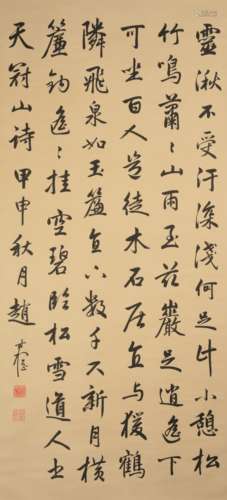 靈湫不受汙深淺何足計小憩松
竹鳴蕭〻山雨至茲巖足逍遙下
可坐百人豈徒木石居直與猨鶴
隣飛泉如玉簾直下數千尺新月橫
簾鉤遙〻挂空碧臨松雪道人書
天冠山诗甲申秋月趙